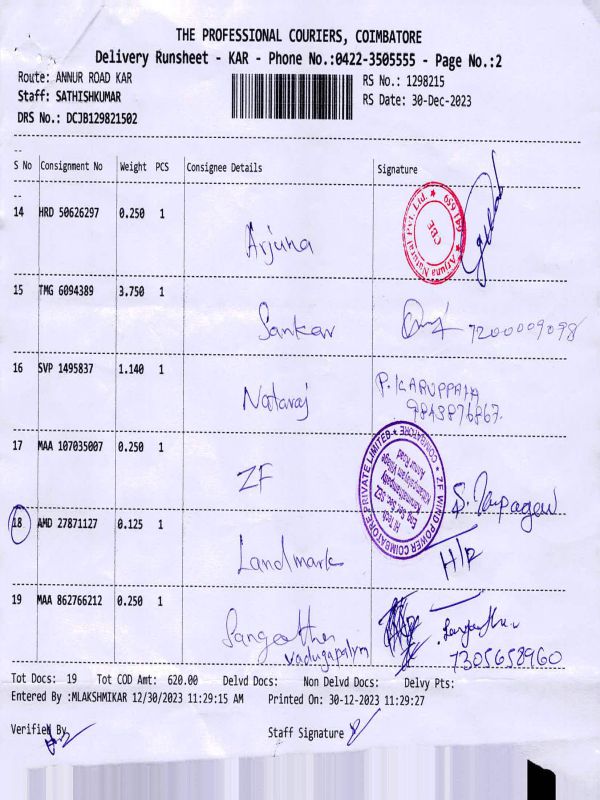 THE PROFESSIONAL COURIERS, COIMBATORE
Delivery Runsheet - KAR - Phone No.:0422-3505555 - Page No.:2
Route: ANNUR ROAD KAR RS No.: 1298215
Staff: SATHISHKUMAR RS Date: 30-Dec-2023
DRS No.: DCJB129821502
S No Consignment No Weight PCS Consignee Details Signature
14 HRD 50626297 0.250 1 Arjuna
Arjuna Natural Pvt. Ltd. ★ 641 659 ★
CBE
15 TMG 6094389 3,750 1 Sankar 7200009098
16 SVP 1495837 1.140 1 Nataraj P. KARUPPAIA
9843876867.
17 MAA 107035007 0.250 1 ZF
★ ZF WIND POWER COIMBATORE PRIVATE LIMITED ★ COIMBATORE
18 AMD 27871127 0.125 1 Landmark H/R
19 MAA 862766212 0.250 1 Sangeetha
vadugapalym
7305658960
Tot Docs: 19 Tot COD Amt: 620.00 Delvd Docs: Non Delvd Docs: Delvy Pts:
Entered By :MLAKSHMIKAR 12/30/2023 11:29:15 AM Printed On: 30-12-2023 11:29:27
Verified By
Staff Signature